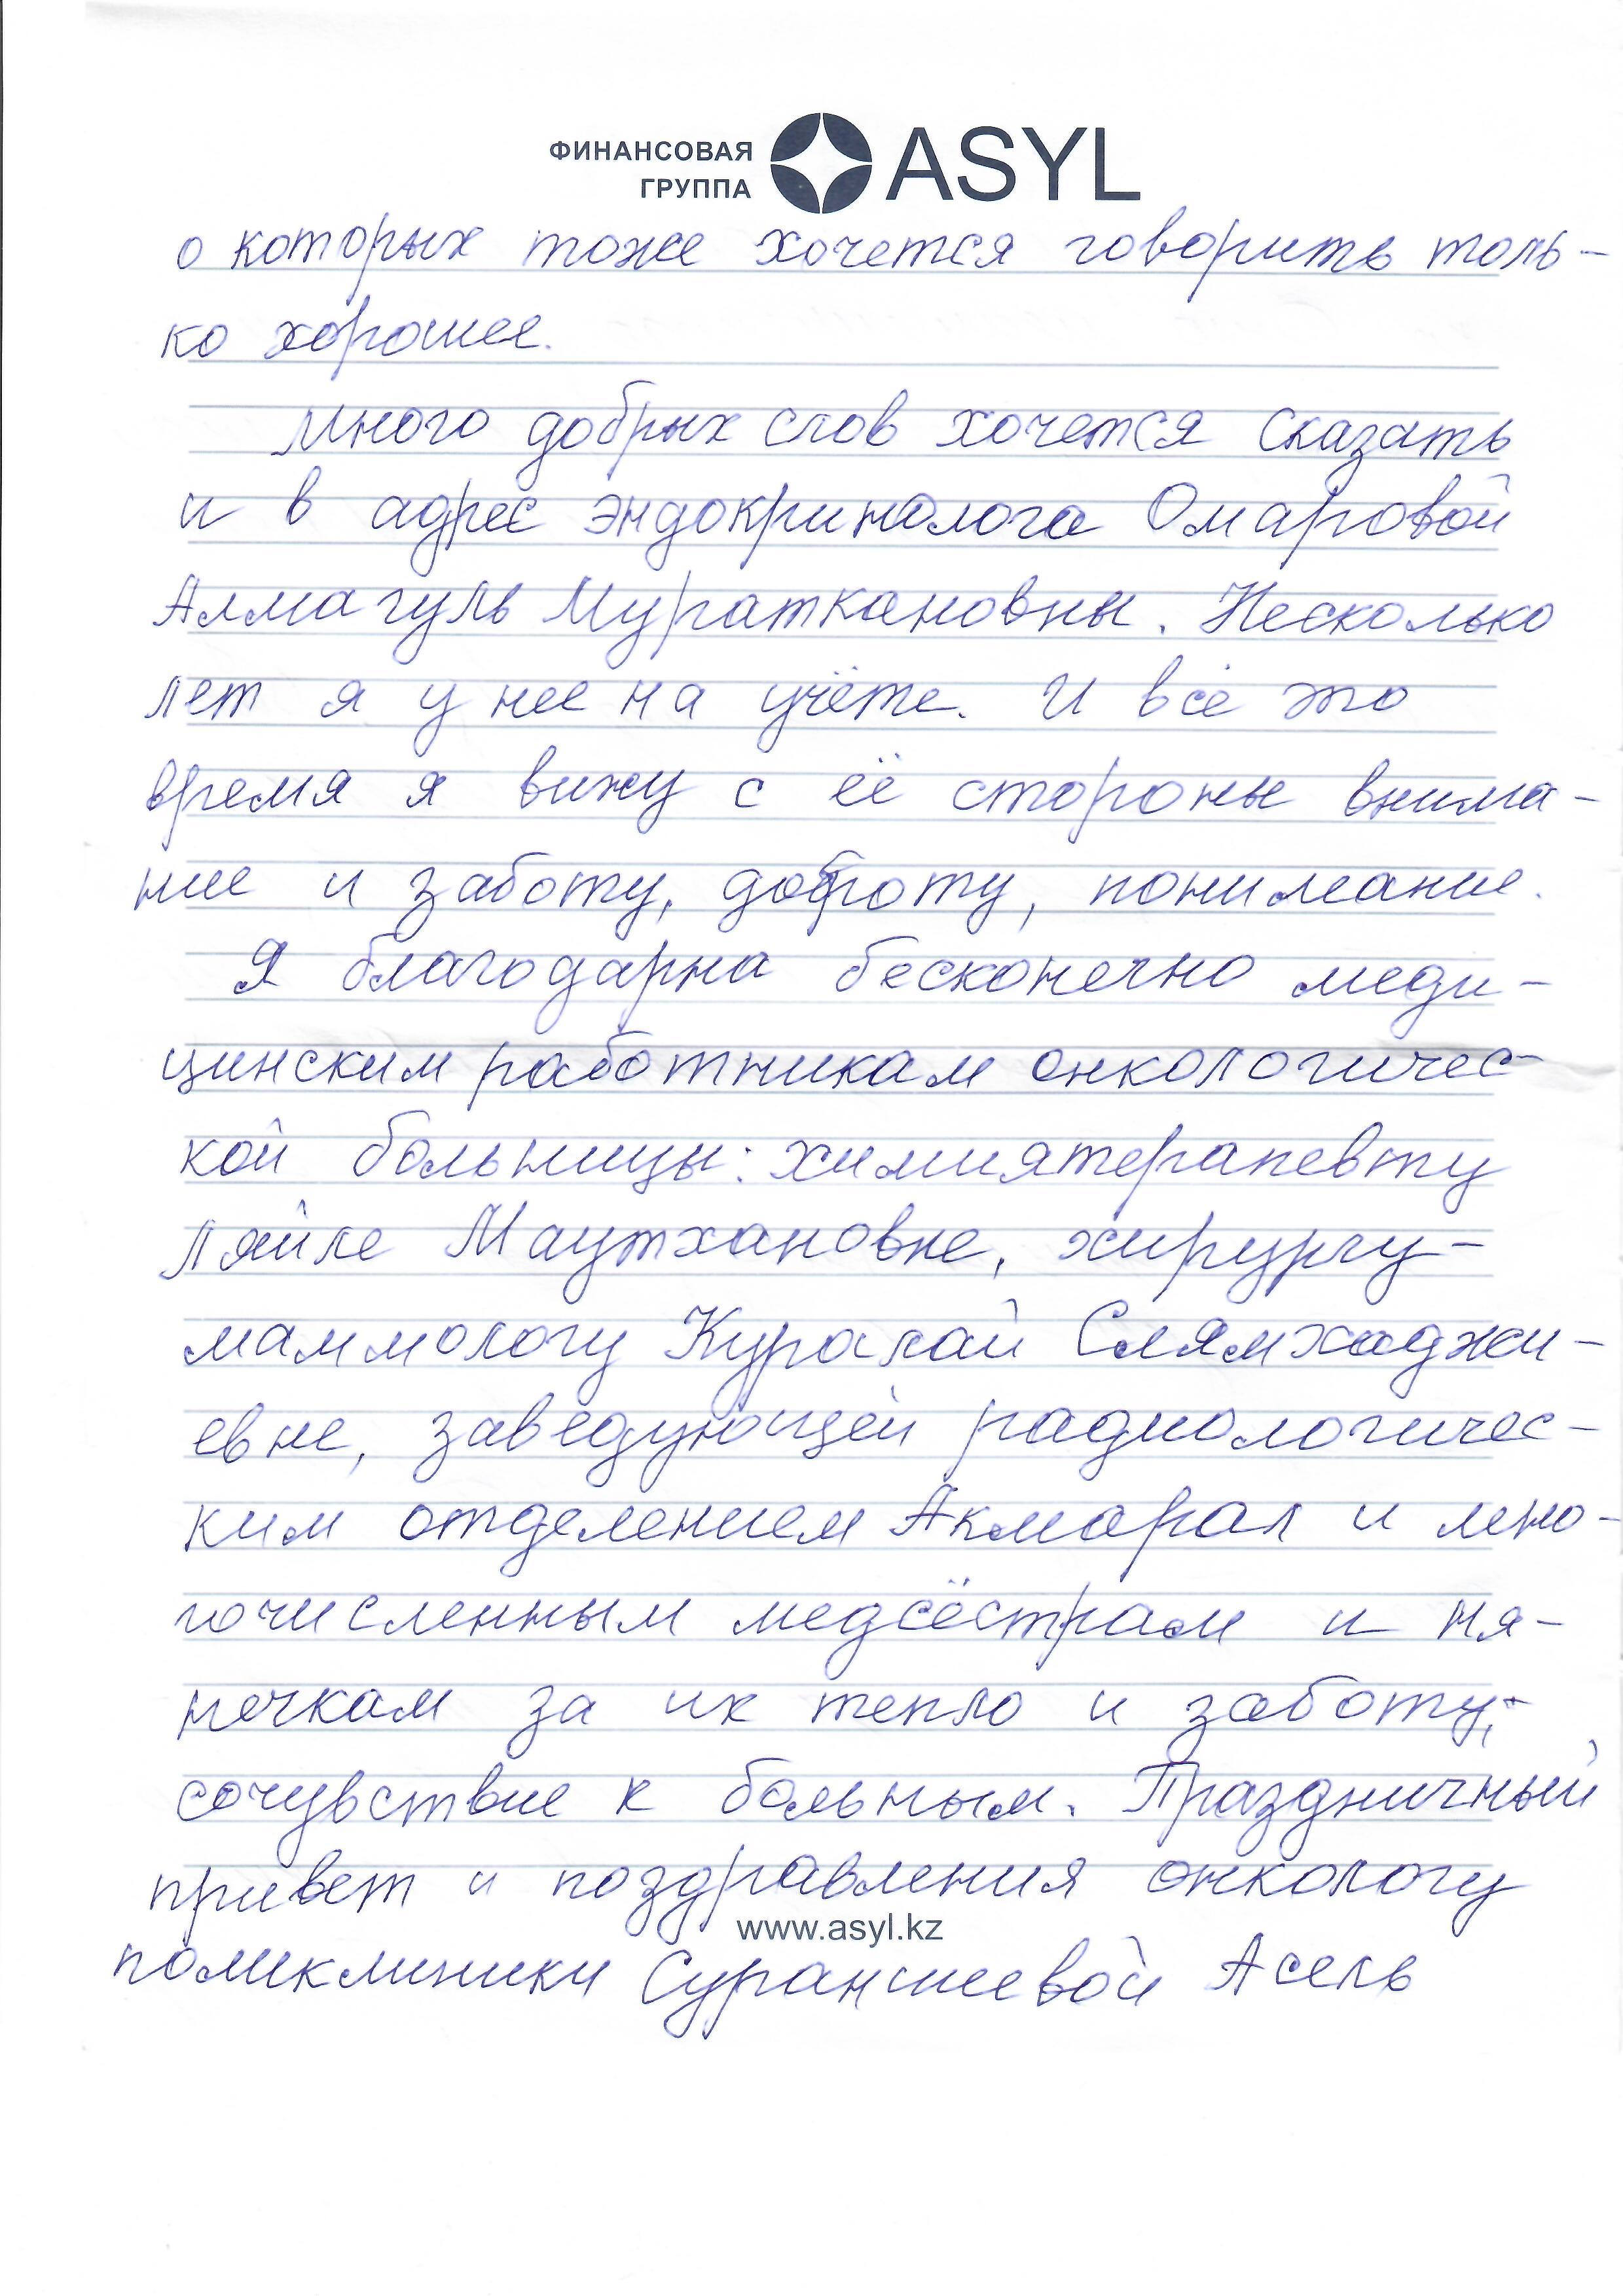 ФИНАНСОВАЯ
ГРУППА
ASYL
о которых тоже хочется говорить толь-
ко хорошее.
Много добрых слов хочется сказать
и в адрес эндокринолога Омаровой
Алмагуль Мураткановны. Несколько
лет я у нее на учёте. И всё это
время я вижу с её стороны внима-
ние и заботу, доброту, понимание.
Я благодарна бесконечно меди-
цинским работникам онкологичес-
кой больницы: химиятерапевту
Ляйле Маутхановне, хирургу-
маммологу Куралай Слямхаджи-
евне, заведующей радиологичес-
ким отделением Акмарал и мно-
гочисленным медсёстрам и ня-
нечкам за их тепло и заботу,
сочувствие к больным. Праздничный
привет и поздравления онкологу
www.asyl.kz
поликлиники Сураншеевой Асель